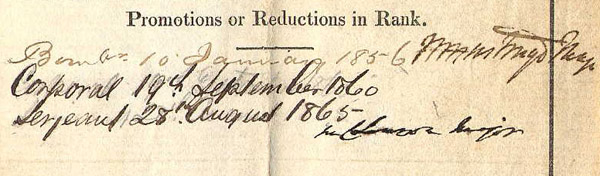 Promotions or Reductions in Rank.
Bombr 10 January 1856
Corporal 19th September 1860
Serjeant 28th August 1865
Major